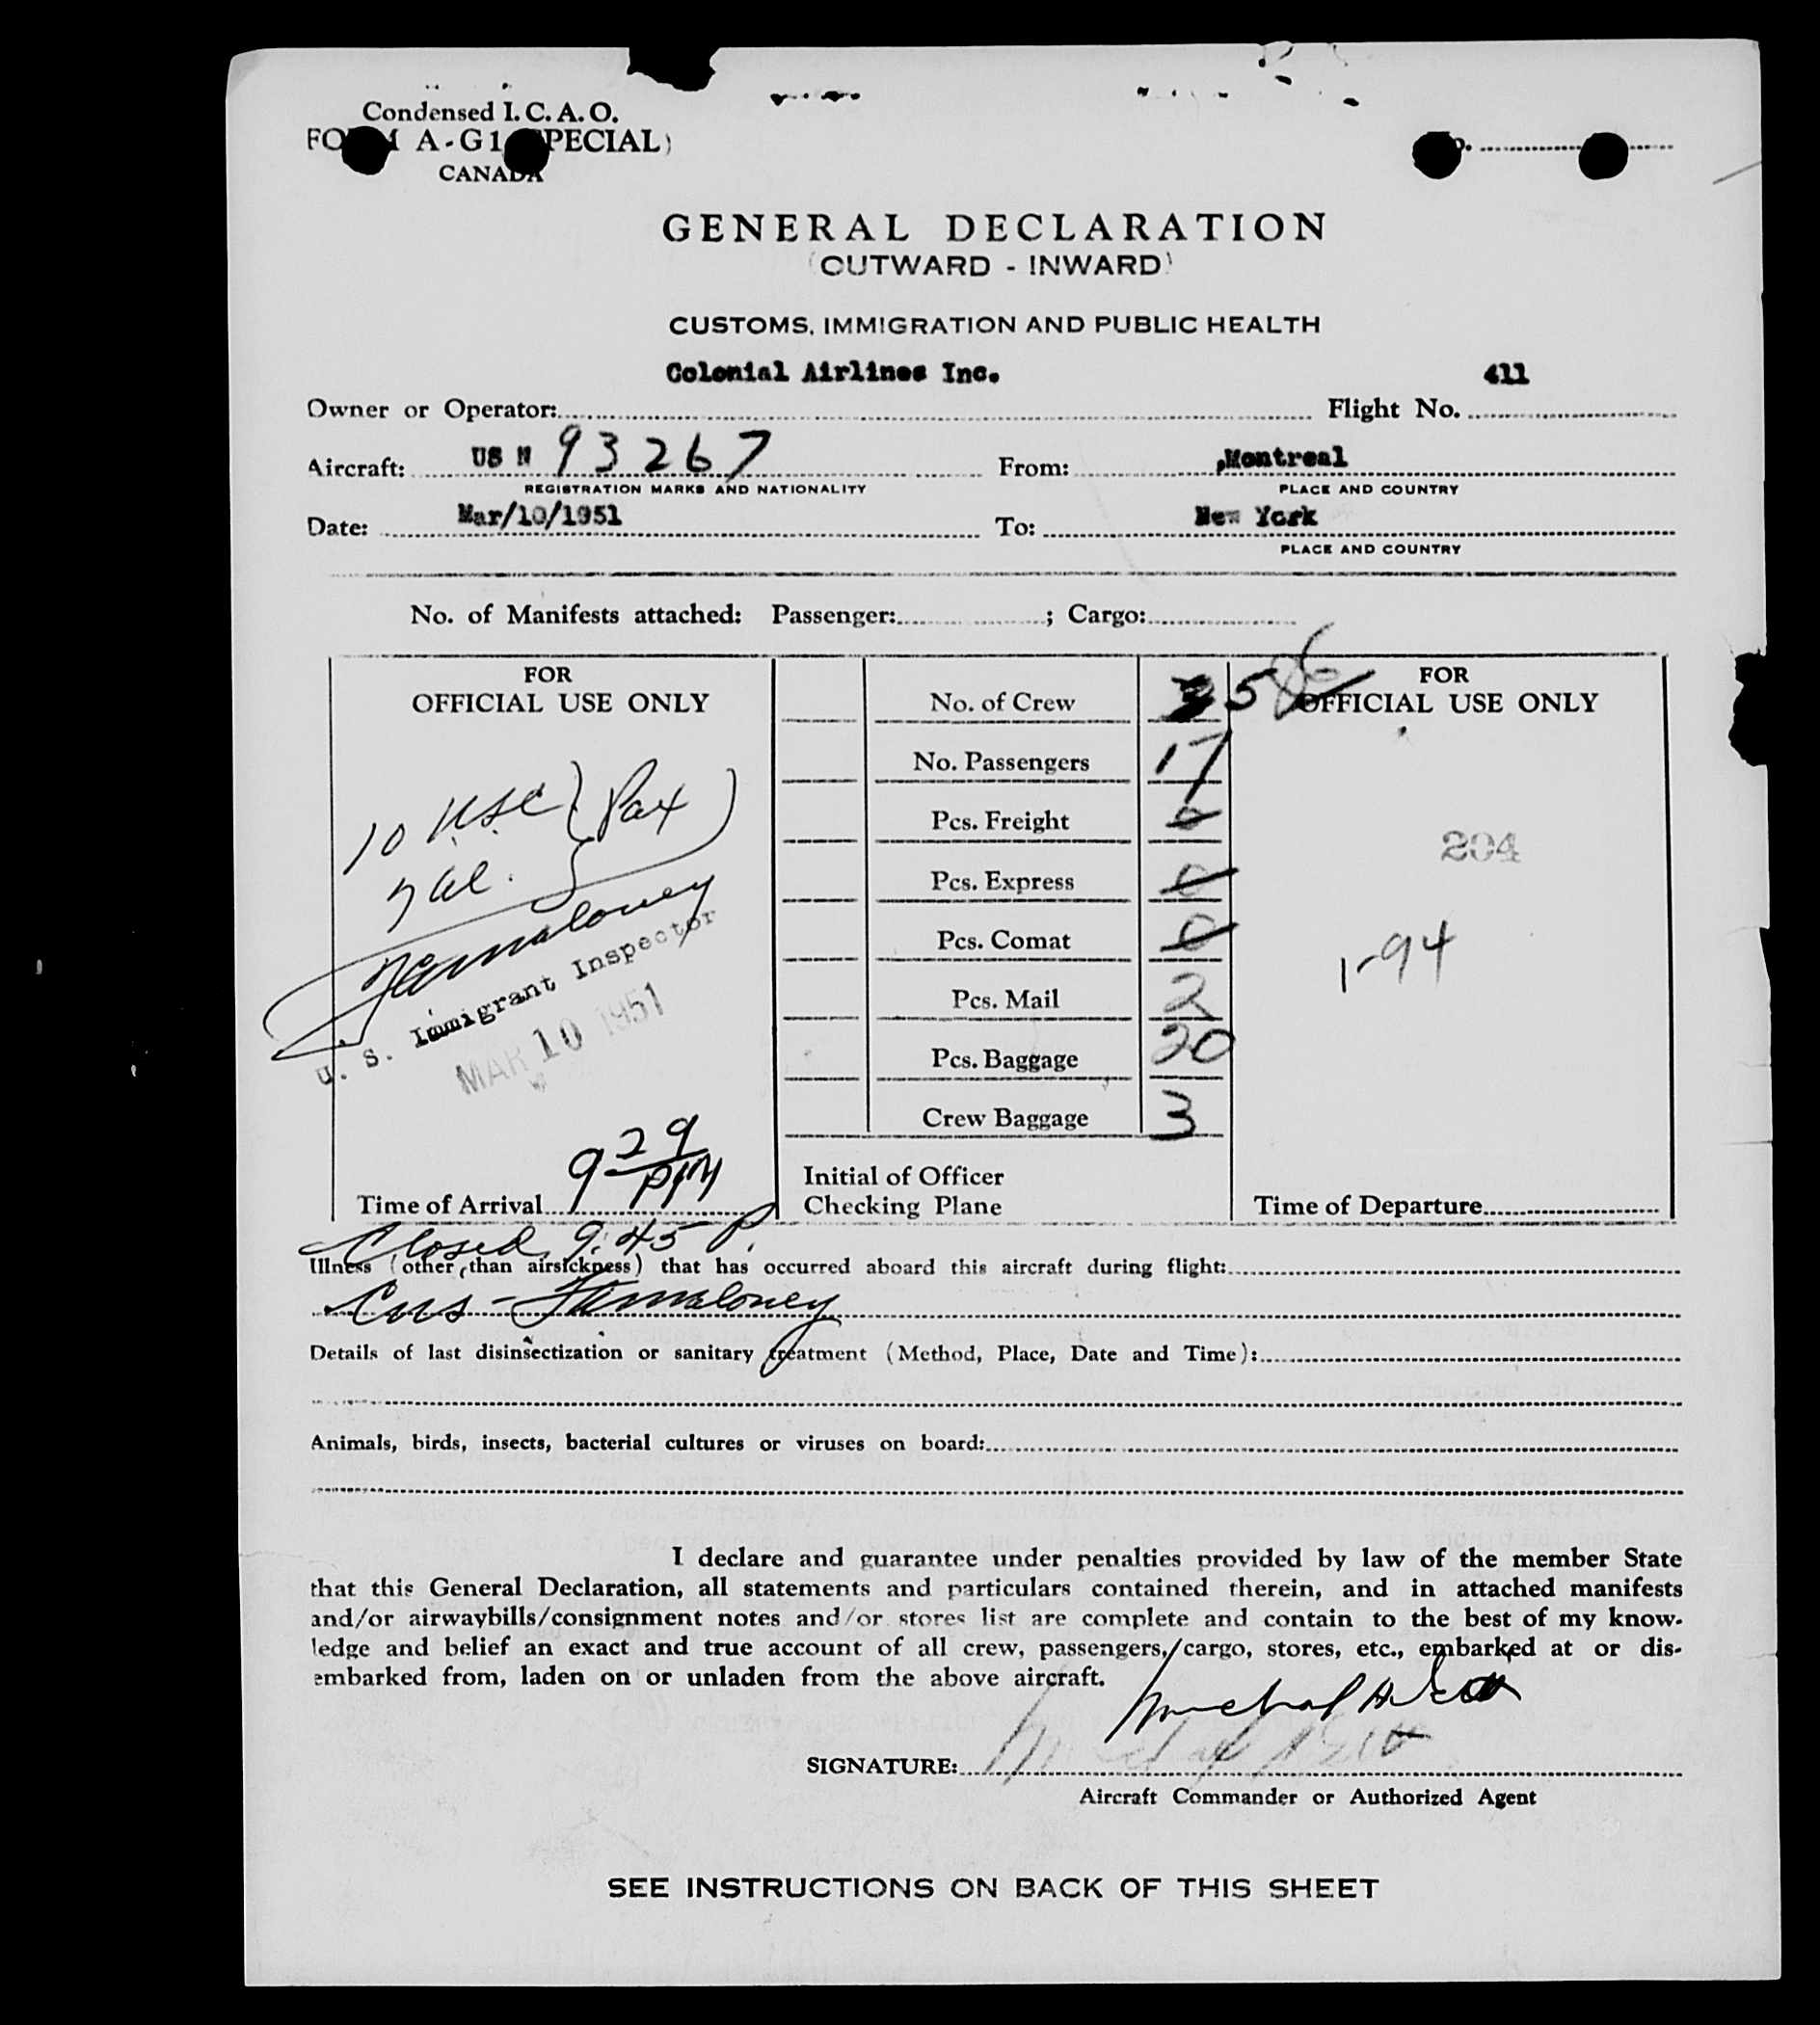 Condensed I. C. A. O.
FORM A-G1 (SPECIAL)
CANADA
GENERAL DECLARATION
(OUTWARD - INWARD)
CUSTOMS, IMMIGRATION AND PUBLIC HEALTH
Owner or Operator: Colonial Airlines Inc. Flight No. 411
Aircraft: US N 93267 From: Montreal
REGISTRATION MARKS AND NATIONALITY PLACE AND COUNTRY
Date: Mar/10/1951 To: New York
PLACE AND COUNTRY
No. of Manifests attached: Passenger: ; Cargo:
FOR
OFFICIAL USE ONLY
10 USC } Pax
7 al.
U. S. Immigrant Inspector
MAR 10 1951
Time of Arrival 9 29 PM
No. of Crew 5
No. Passengers 17
Pcs. Freight 0
Pcs. Express 0
Pcs. Comat 0
Pcs. Mail 2
Pcs. Baggage 20
Crew Baggage 3
Initial of Officer
Checking Plane
FOR
OFFICIAL USE ONLY
204
1-94
Time of Departure
Closed 9:45 P.
Illness (other than airsickness) that has occurred aboard this aircraft during flight:
Details of last disinsectization or sanitary treatment (Method, Place, Date and Time):
Animals, birds, insects, bacterial cultures or viruses on board:
I declare and guarantee under penalties provided by law of the member State
that this General Declaration, all statements and particulars contained therein, and in attached manifests
and/or airwaybills/consignment notes and/or stores list are complete and contain to the best of my know-
ledge and belief an exact and true account of all crew, passengers, cargo, stores, etc., embarked at or dis-
embarked from, laden on or unladen from the above aircraft.
SIGNATURE:
Aircraft Commander or Authorized Agent
SEE INSTRUCTIONS ON BACK OF THIS SHEET